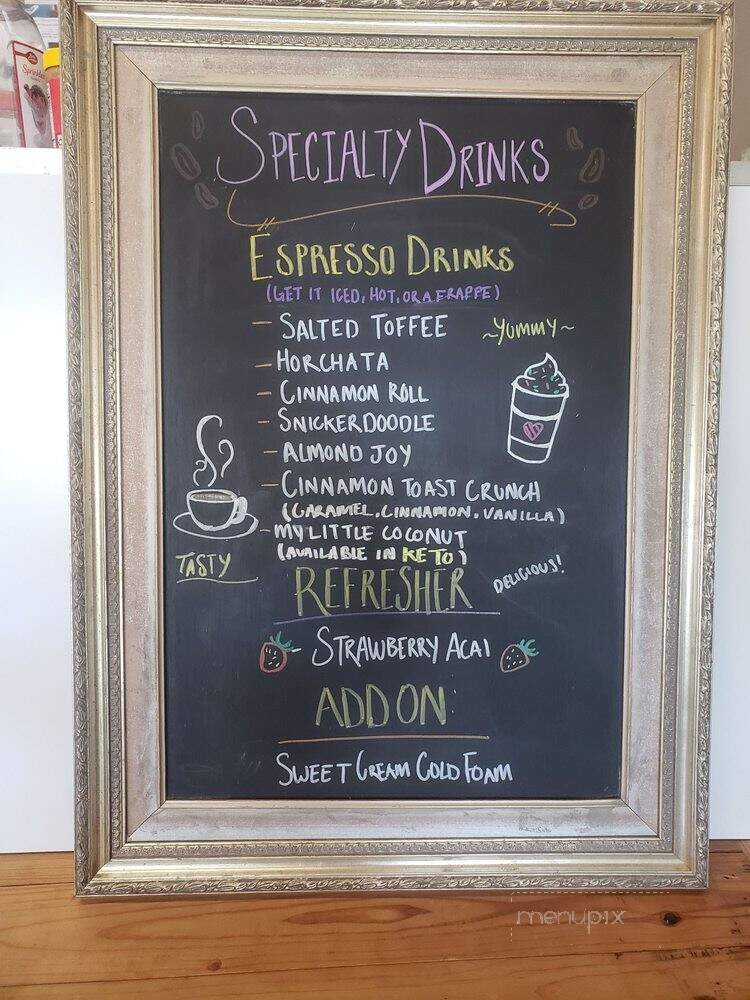 Sprinkles
SPECIALTY DRINKS
ESPRESSO DRINKS
(GET IT ICED, HOT, OR A FRAPPE)
- SALTED TOFFEE
~YUMMY~
- HORCHATA
- CINNAMON ROLL
- SNICKERDOODLE
- ALMOND JOY
- CINNAMON TOAST CRUNCH
(CARAMEL, CINNAMON, VANILLA)
- MY LITTLE COCONUT
(AVAILABLE IN KETO)
TASTY
REFRESHER
DELICIOUS!
- STRAWBERRY ACAI
ADD ON:
SWEET CREAM COLD FOAM
menupix